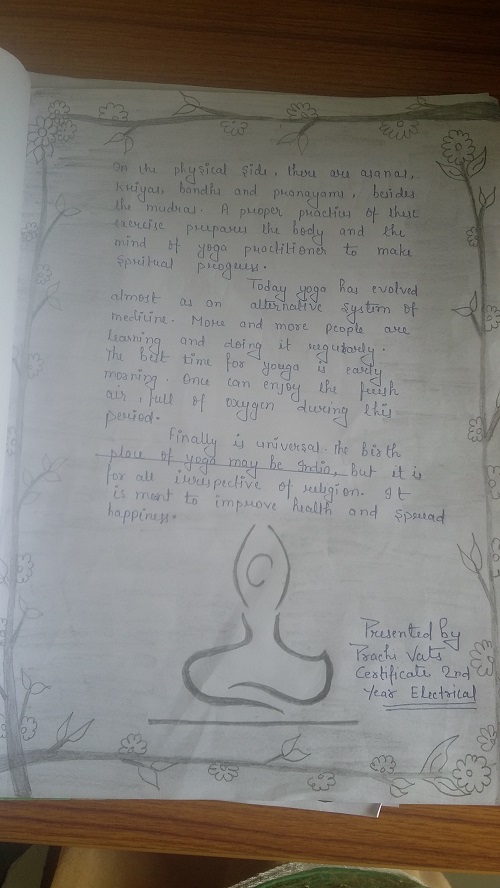 On the physical side, there are asanas,
kriyas, bandhs and pranayams, besides
the mudras. A proper practise of these
exercise prepares the body and the
mind of yoga practitioner to make
spritual progress.
Today yoga has evolved
almost as an alternative system of
medicine. More and more people are
learning and doing it regularly.
The best time for youga is early
morning. Once can enjoy the fresh
air, full of oxygen during this
period.
Finally is universal. the birth
place of yoga may be India, but it is
for all irrespective of religion. It
is ment to improve health and spread
happiness.
Presented by
Prachi Vats
Certificate 2nd
Year Electrical